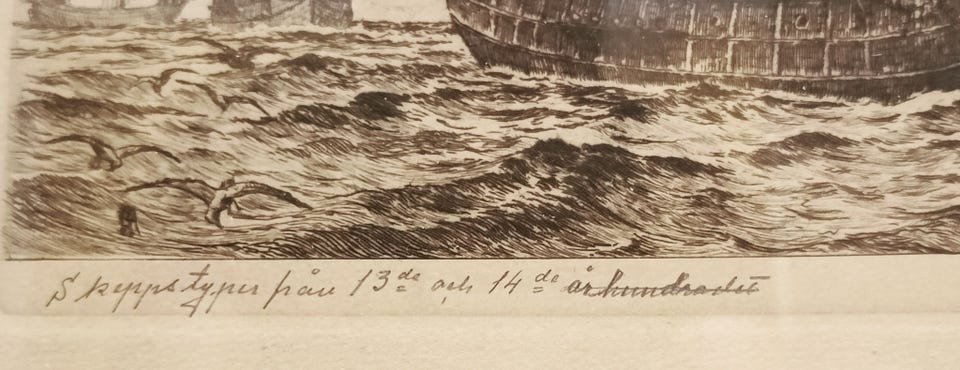 Skeppstyper från 13de och 14de århundradet